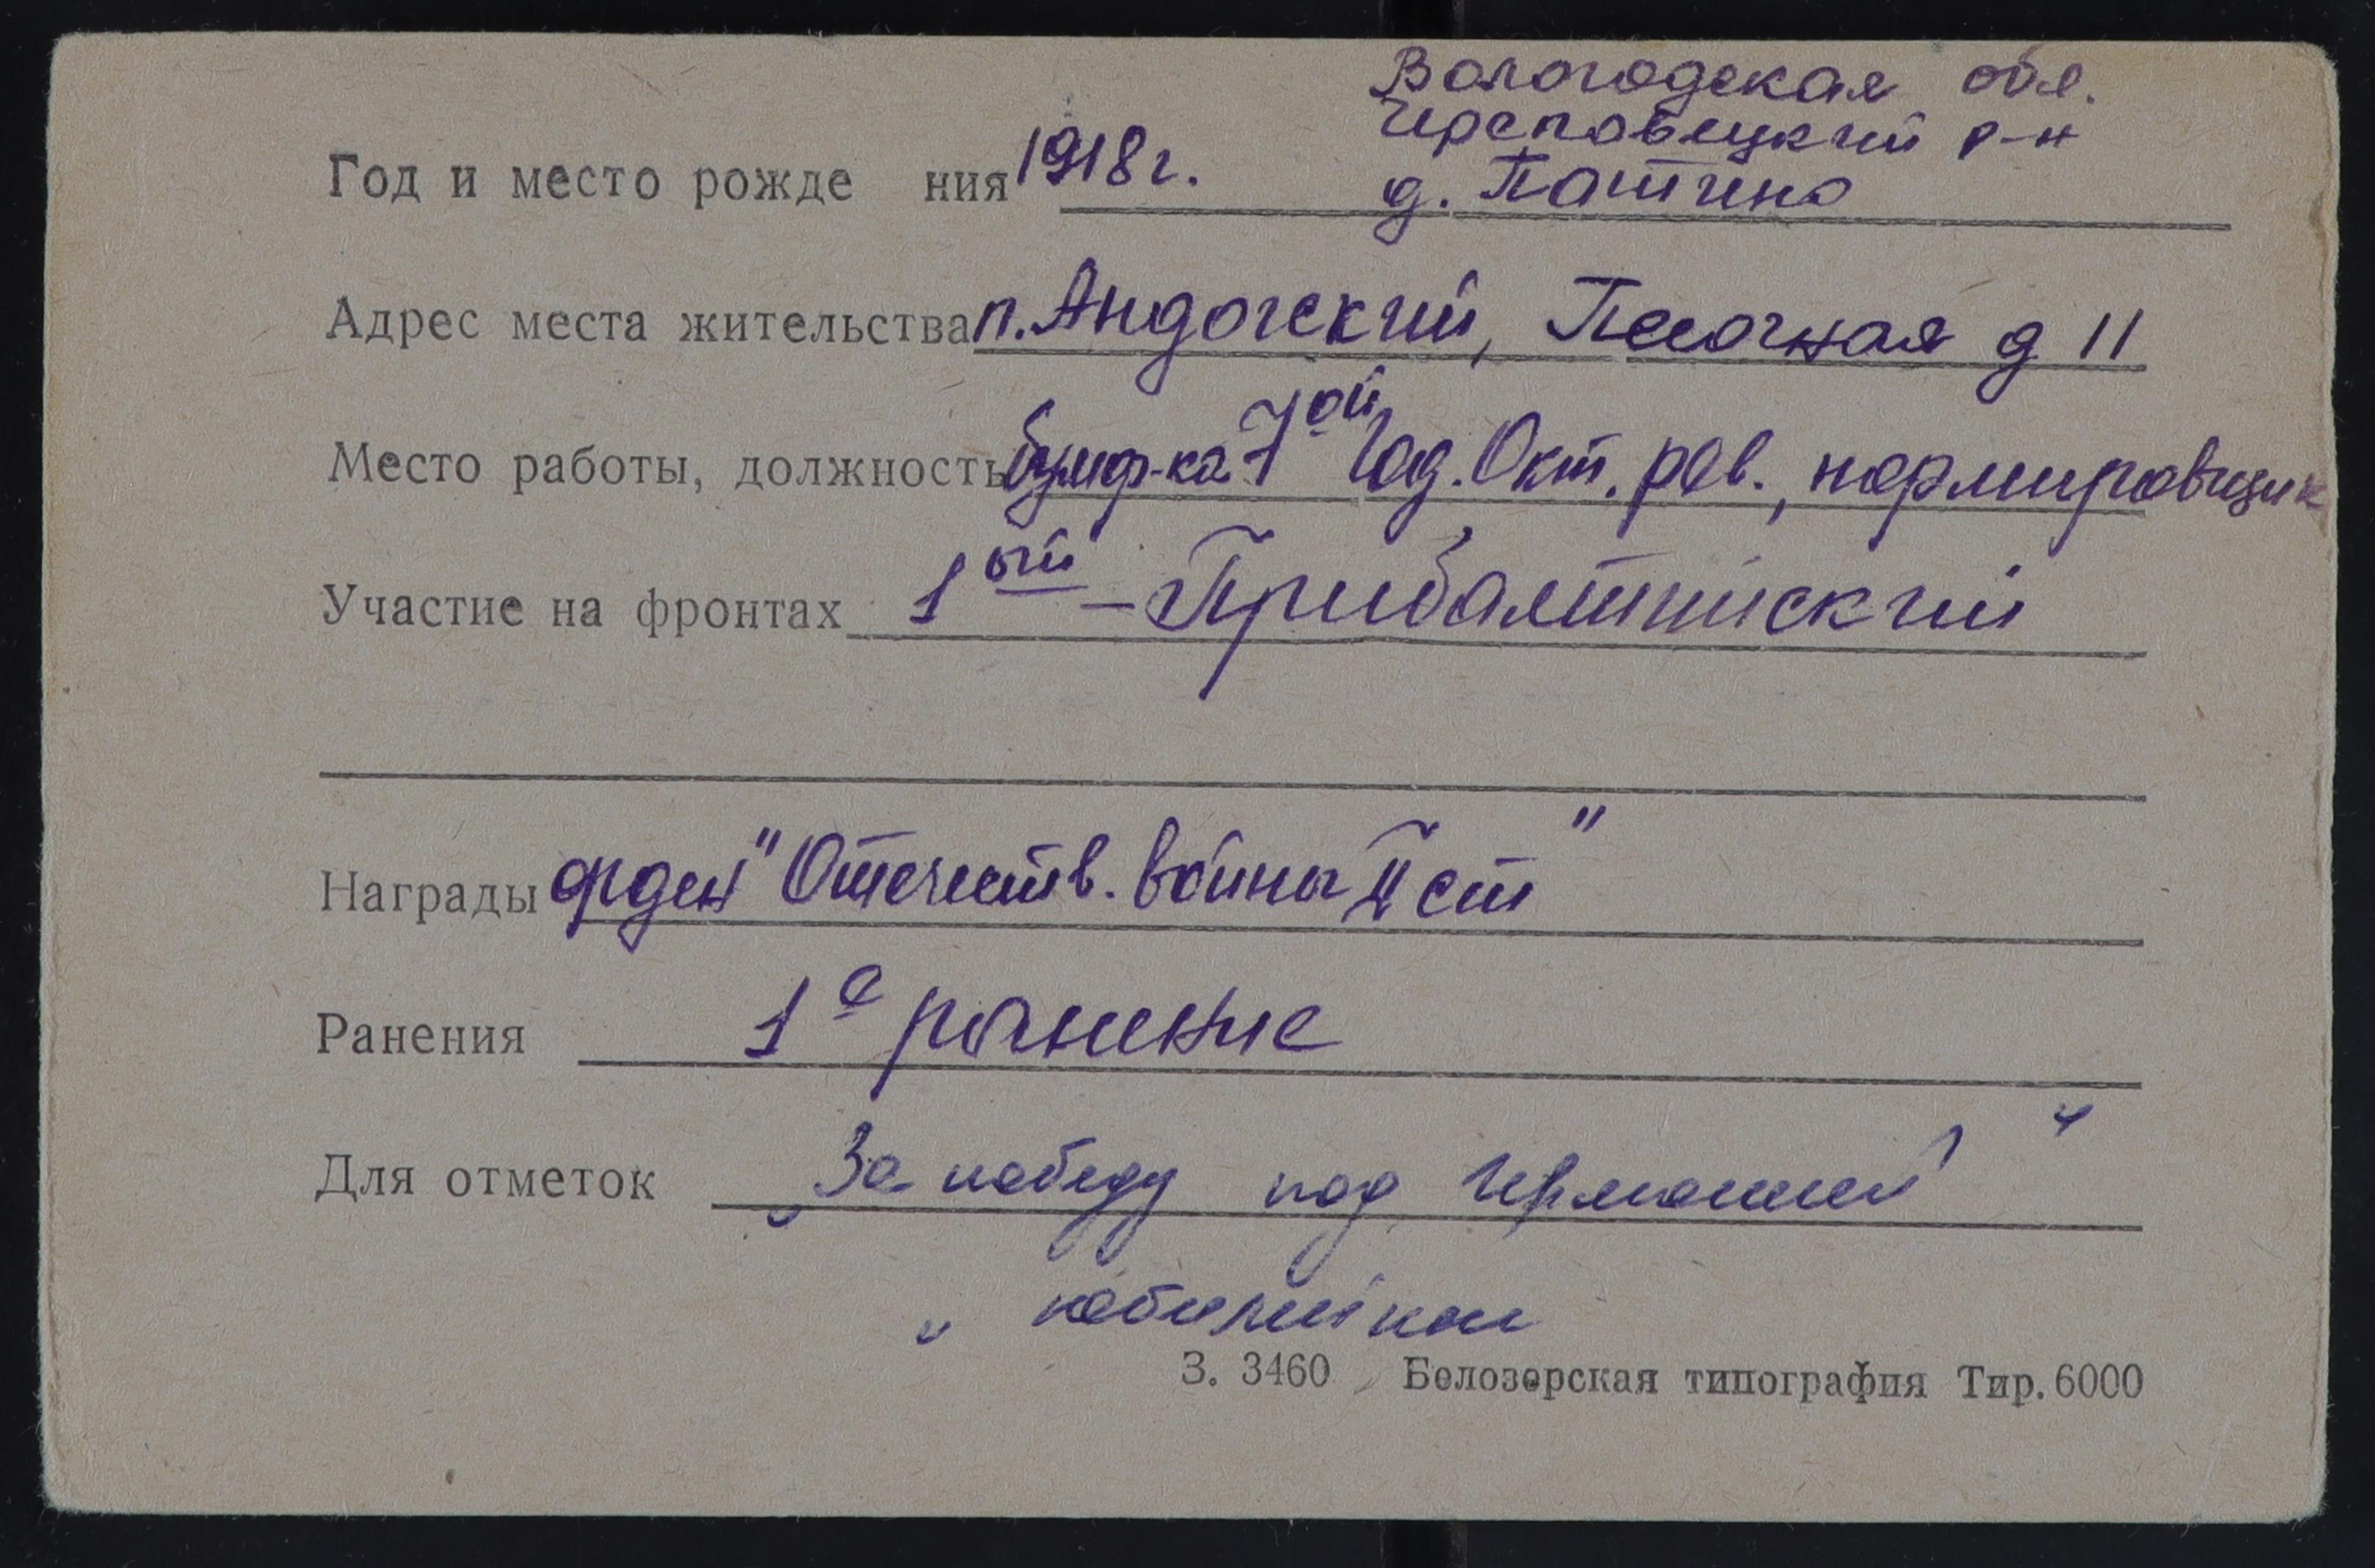 Вологодская обл.
Череповецкий р-н
Год и место рожде ния 1918 г. д. Патино
Адрес места жительства п. Андогский, Песочная д 11
Место работы, должность бумф-ка 7ой Год. Окт. рев., нормировщик
Участие на фронтах 1ый – Прибалтийский
Награды орден "Отечеств. войны II ст"
Ранения 1е ранение
Для отметок „За победу под Германией“
„ юбилейные
З. 3460 Белозерская типография Тир. 6000